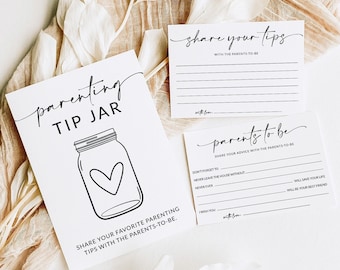 parenting
TIP JAR
SHARE YOUR FAVORITE PARENTING
TIPS WITH THE PARENTS-TO-BE.
share your tips
WITH THE PARENTS-TO-BE
parents to be
SHARE YOUR ADVICE WITH THE PARENTS-TO-BE
DON'T FORGET TO
NEVER LEAVE THE HOUSE WITHOUT
WILL SAVE YOUR LIFE.
WILL BE YOUR BEST FRIEND.